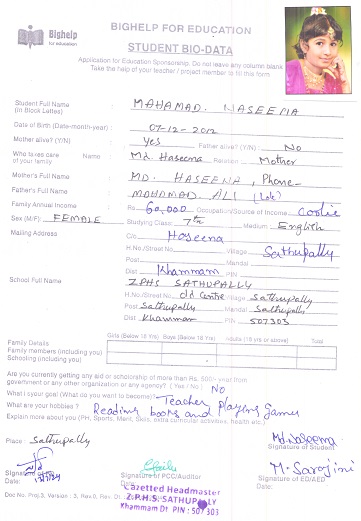 Bighelp
for education
BIGHELP FOR EDUCATION
STUDENT BIO-DATA
Application for Education Sponsorship, Do not leave any column blank
Take the help of your teacher / project member to fill this form
Student Full Name (in Block Letters) : MAHAMAD. NASEEMA
Date of Birth (Date-month-year) : 07-12-2012
Mother alive? (Y/N) : Yes Father alive? (Y/N) : No
Who takes care of your family. Name : Md. Haseena Relation : Mother
Mother's Full Name : MD. HASEENA, Phone-
Father's Full Name : MOHAMAD ALI (Late)
Family Annual Income : Rs. 60,000 Occupation/Source of Income : Coolie
Sex (M/F): FEMALE Studying Class : 7th Medium : English
Mailing Address C/o Hoseena
H.No./Street No. Village Sathupally
Post Mandal
Dist Khammam PIN
School Full Name : ZPHS SATHUPALLY
H.No./Street No. Old Centre Village Sathupally
Post Sathupally Mandal Sathupally
Dist Khammam PIN 507303
Girls (Below 18 Yrs) Boys (Below 18 Yrs) Adults (18 yrs or above) Total
Family Details
Family members (including you)
Schooling (including you)
Are you currently getting any aid or scholarship of more than Rs. 500/- year from
government or any other organization or any agency? ( Yes / No ) No
What is your goal (What do you want to become) : Teacher
What are your hobbies : Reading books and Playing Games
Explain more about you (PH, Sports, Music, Skills, extra curricular activities, health etc.)
Place : Sathupally
Md. Naseema
Signature of Student
M. Sarojini
Signature of PCC/Auditor
Signature of ED/AED
Date
Gazetted Headmaster
Z.P.H.S. SATHUPALLY
Khammam Dt PIN : 507303